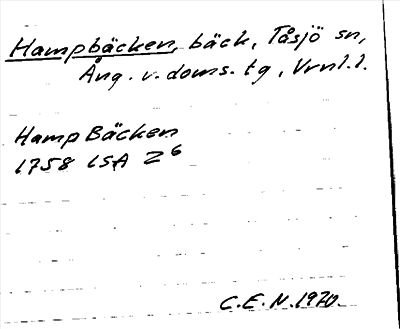 Hampbäcken, bäck, Tåsjö sn,
Ång. v. doms. tg, Vrnl.l.
HampBäcken
1758 LSA Z6
C.E.N. 1970.